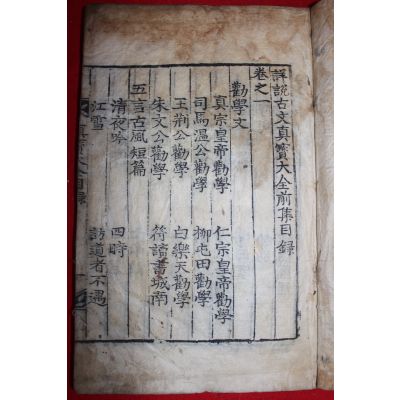 詳說古文真寶大全前集目録
卷之一
勸學文
真宗皇帝勸學 仁宗皇帝勸學
司馬溫公勸學 柳屯田勸學
王荊公勸學 白樂天勸學
朱文公勸學 符讀書城南
五言古風短篇
清夜吟 四時
江雪 訪道者不遇